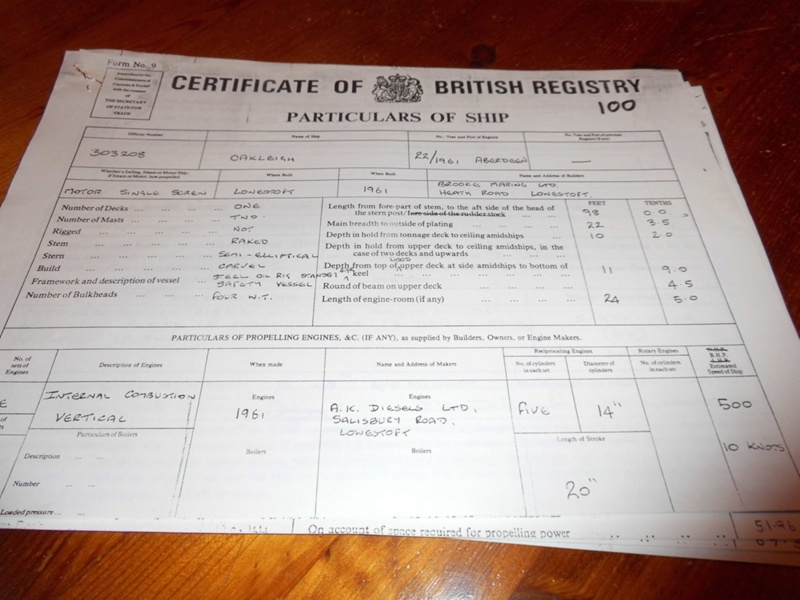 Form No. 9
Prescribed by the
Commissioners of
Customs & Excise
with the consent
of
THE SECRETARY
OF STATE FOR
TRADE
CERTIFICATE OF BRITISH REGISTRY
100
PARTICULARS OF SHIP
Official Number Name of Ship No., Year and Port of Registry No., Year and Port of previous Registry (if any)
303208 OAKLEIGH 22/1961 ABERDEEN —
Whether a Sailing, Steam or Motor Ship; if Steam or Motor, how propelled Where Built When Built Name and Address of Builders
MOTOR SINGLE SCREW LOWESTOFT 1961 BROOKE MARINE LTD.
HEATH ROAD LOWESTOFT.
FEET TENTHS
Number of Decks ... ONE
Number of Masts ... TWO
Rigged ... NOT
Stem ... RAKED
Stern ... SEMI-ELLIPTICAL
Build ... CARVEL
Framework and description of vessel STEEL OIL RIG STANDBY
SAFETY VESSEL
Number of Bulkheads ... FOUR W.T.
Length from fore-part of stem, to the aft side of the head of
the stern post/fore side of the rudder stock 98 00
Main breadth to outside of plating 22 35
Depth in hold from tonnage deck to ceiling amidships 10 20
Depth in hold from upper deck to ceiling amidships, in the
case of two decks and upwards
Depth from top of upper deck at side amidships to bottom of
keel 11 9.0
Round of beam on upper deck 4.5
Length of engine-room (if any) 24 5.0
PARTICULARS OF PROPELLING ENGINES, &C. (IF ANY), as supplied by Builders, Owners, or Engine Makers.
No. of
sets of
Engines
Description of Engines When made Name and Address of Makers
Reciprocating Engines Rotary Engines
No. of cylinders in each set Diameter of cylinders No. of cylinders in each set
B.H.P.
Estimated
Speed of Ship
Engines Engines
INTERNAL COMBUSTION
VERTICAL
1961
A.K. DIESELS LTD,
SALISBURY ROAD,
LOWESTOFT
FIVE 14" 500
10 KNOTS
Particulars of Boilers Boilers Boilers Length of Stroke
Description ...
Number ...
20"
Loaded pressure ...
On account of space required for propelling power